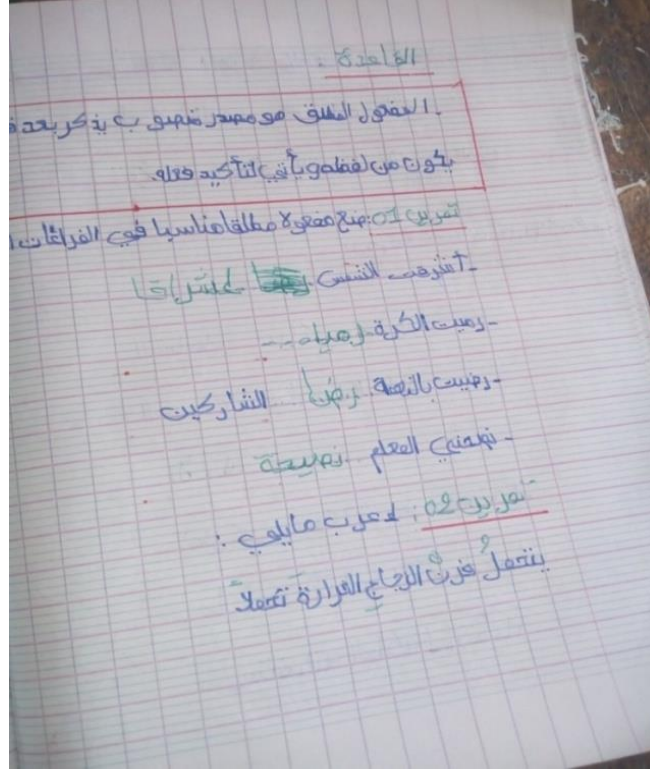 القاعدة:
- المفعول المطلق هو مصدر منصوب يذكر بعد
يكون من لفظه ويأتي لتأكيد فعله.
تمرين 01: ضع مفعولا مطلقا مناسبا في الفراغات
- أشرقت الشمس إشراقا
- رميت الكرة رمياه...
- رضيت بالنعمة رضا الشاركين
- نصحني المعلم نصيحة
تمرين 02: إعرب مايلي:
يتحملُ فرنُ الزجاجِ الحرارةَ تحملاً